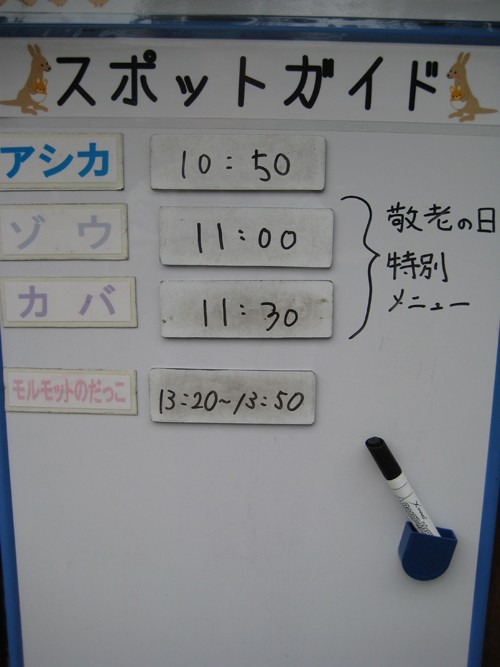 スポットガイド
アシカ 10:50
ゾウ 11:00
カバ 11:30
敬老の日
特別
メニュー
モルモットのだっこ 13:20~13:50